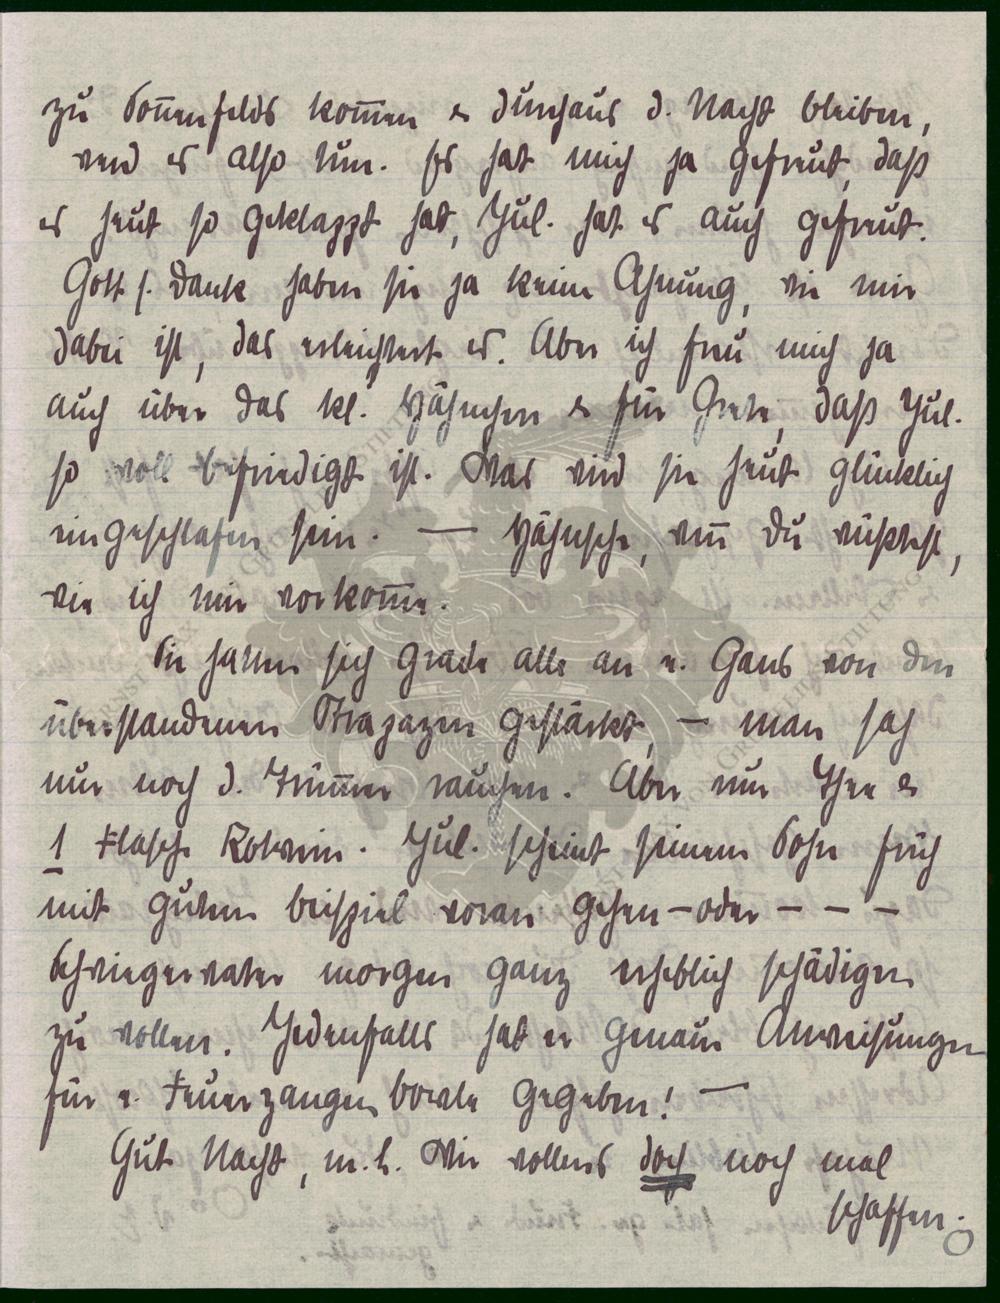 zu Sonnenfelds kom̅en & durchaus d. Nacht bleiben,
werd es also tun. Es hat mich ja gefreut, daß
es heut so geklappt hat, Jul. hat es auch gefreut.
Gott s. Dank haben sie ja keine Ahnung, wie mir
dabei ist, das erleichtert es. Aber ich freu mich ja
auch über das kl. Hähnchen & für Grete, daß Jul.
so voll befriedigt ist. Was wird sie heut glücklich
eingeschlafen sein. — Hähnsche, wen̅ Du wüßtest,
wie ich mir vorkom̅e.
Sie hatten sich grade alle an e. Gans von den
überstandenen Strapazen gestärkt, — man sah
nur noch d. Trüm̅er rauchen. Aber nur Thee &
1 Flasche Rotwein. Jul. scheint seinem Sohn früh
mit gutem beispiel voran gehen – oder – – –
Schwiegervater morgen ganz erheblich schädigen
zu wollen. Jedenfalls hat er genaue Anweisungen
für e. Feuerzangenbowle gegeben! —
Gut Nacht, m. L. Wir wollens doch noch mal
schaffen.